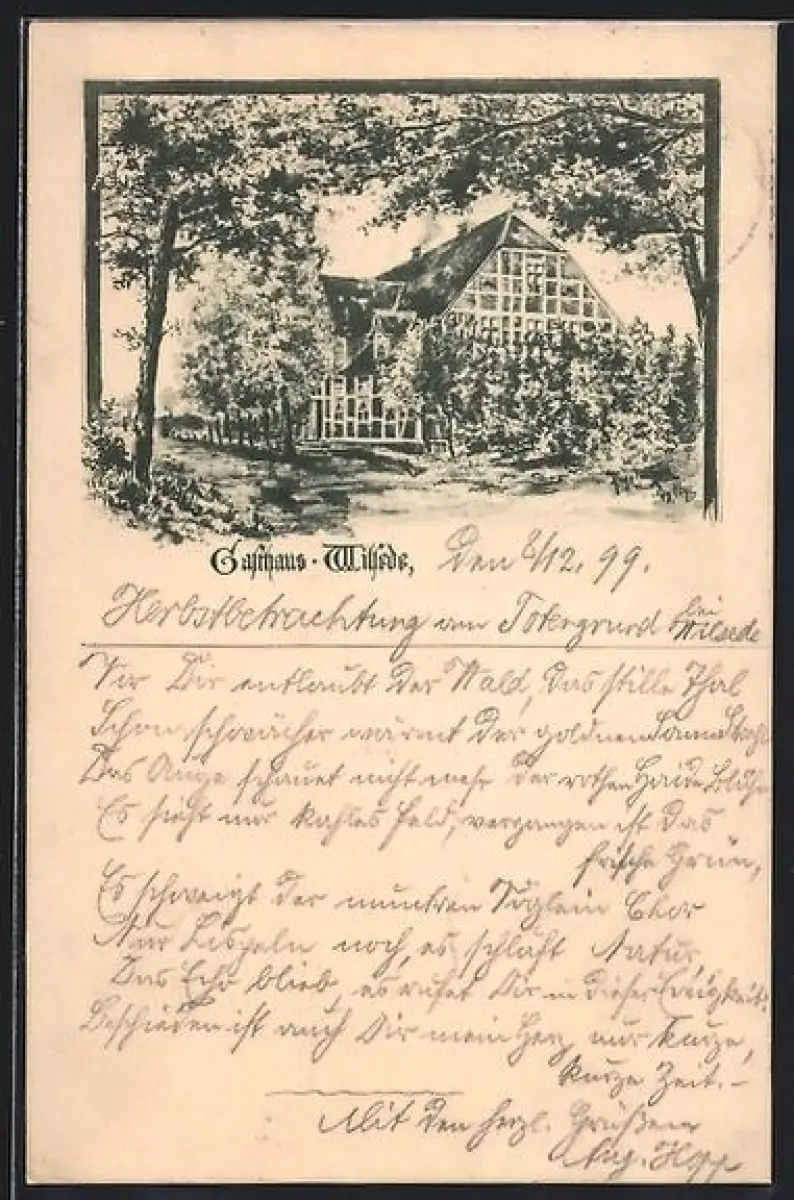 Gasthaus · Wilsede, Den 8/12. 99.
Herbstbetrachtung am Totengrund bei Wilsede
Vor Dir entlaubt der Wald, das stille Thal
Schon schwächer wärmt der goldnen Sonne Strahl
Das Auge schauet nicht mehr der rothen Haide Blühn
Es sieht nur kahles Feld, vergangen ist das
frische Grün,
Es schweigt der muntren Vöglein Chor
Nur Lispeln noch, es schläft Natur
Das Echo blieb, es rufet Dir in dieser Ewigkeit:
Beschieden ist auch Dir mein Herz nur kurze,
kurze Zeit. –
Mit den herzl. Grüßen
Aug. Hopp